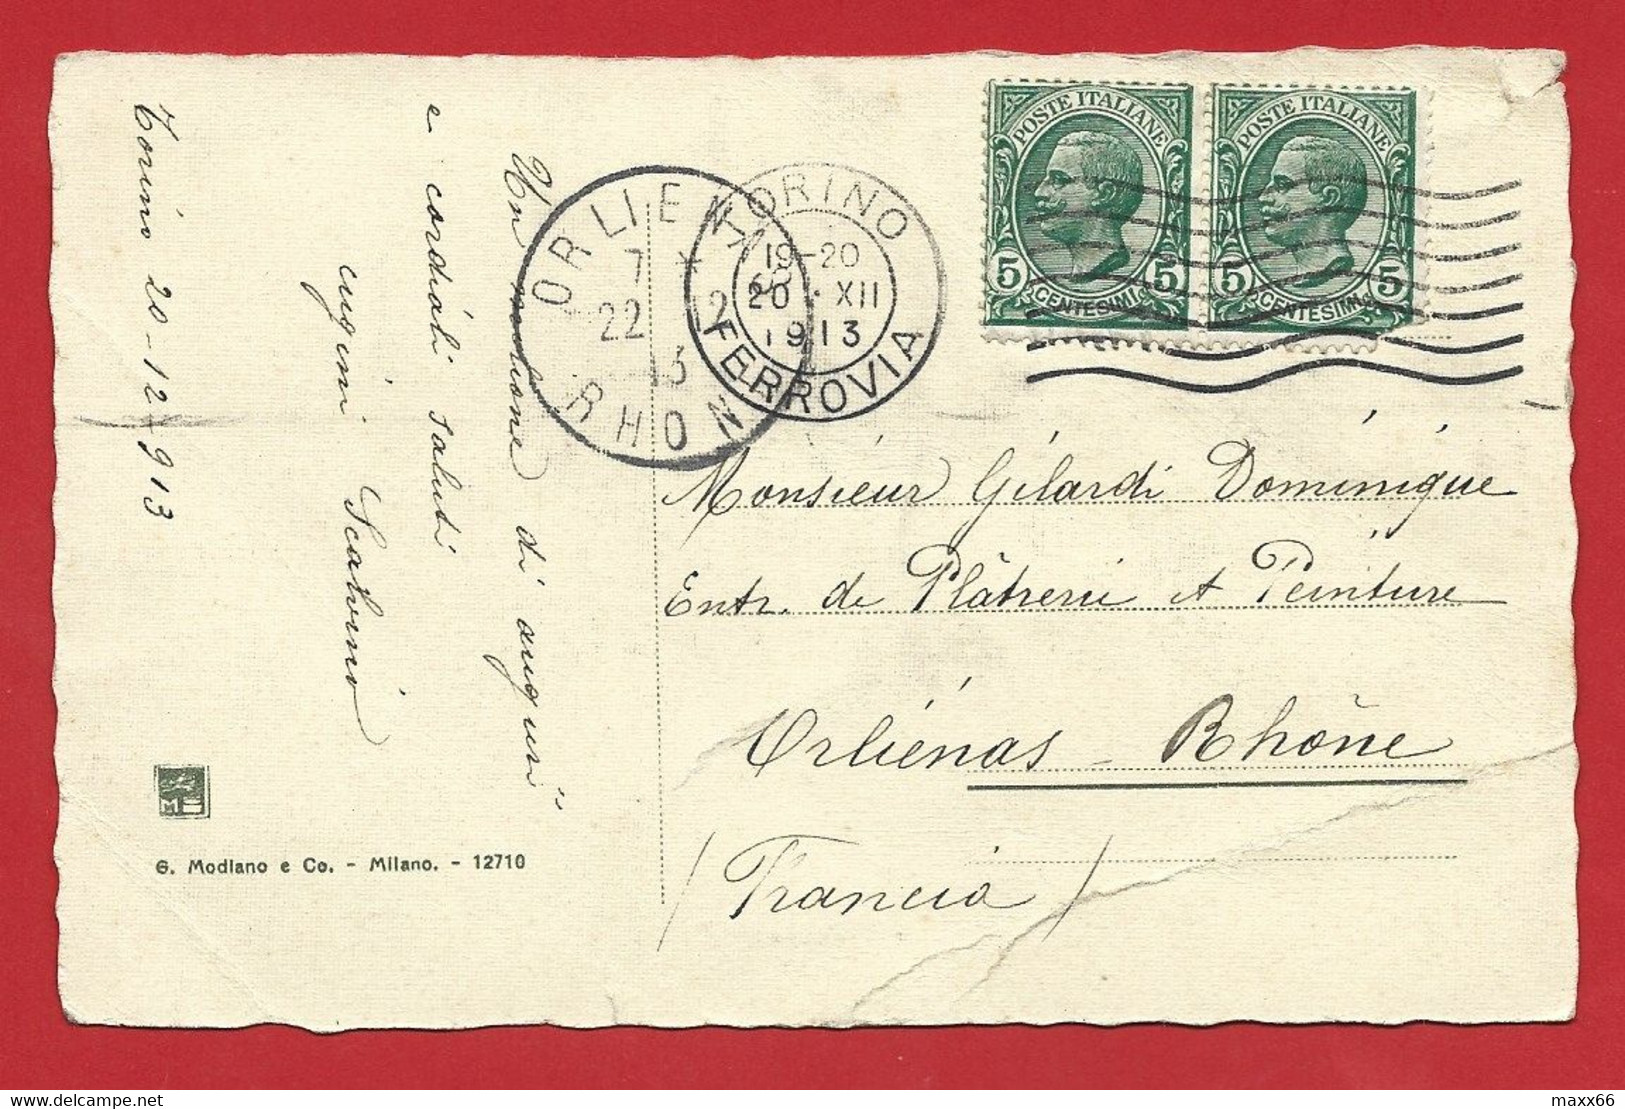 Torino 20-12-913
Un milione di auguri
e cordiali saluti
cugini Scalvino
G. Modiano e Co. - Milano. - 12710
ORLIENAS
7 *
22
13
RHONE
TORINO
19-20
20.XII
1913
FERROVIA
POSTE ITALIANE
5 5
CENTESIMI
POSTE ITALIANE
5 5
CENTESIMI
Monsieur Gilardi Dominique
Entr. de Plâtrerie et Peinture
Orliénas - Rhône
(Francia)
maxx66